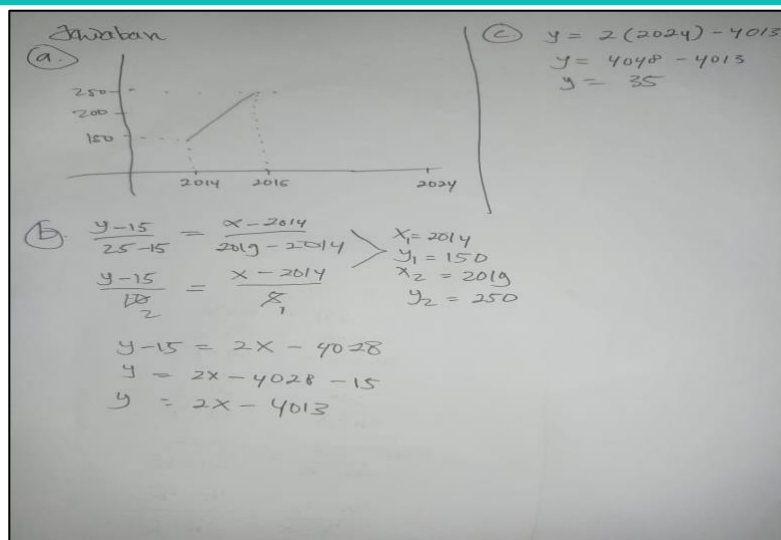 Jawaban
a.
250
200
150
2014 2015 2024
b. y-15 / 25-15 = x-2014 / 2019-2014
y-15 / 10 2 = x-2014 / 5 1
x₁ = 2014
y₁ = 150
x₂ = 2019
y₂ = 250
y-15 = 2x - 4028
y = 2x - 4028 - 15
y = 2x - 4013
c. y = 2(2024) - 4013
y = 4048 - 4013
y = 35